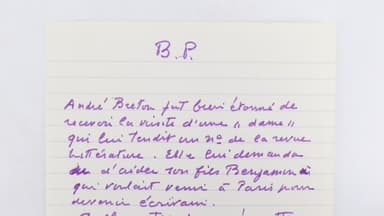 B.P.
André Breton fut bien étonné de
recevoir la visite d'une "dame"
qui lui tendit un nº de la revue
Littérature. Elle lui demanda
d'aider son fils Benjamin
qui voulait venir à Paris pour
devenir écrivain.